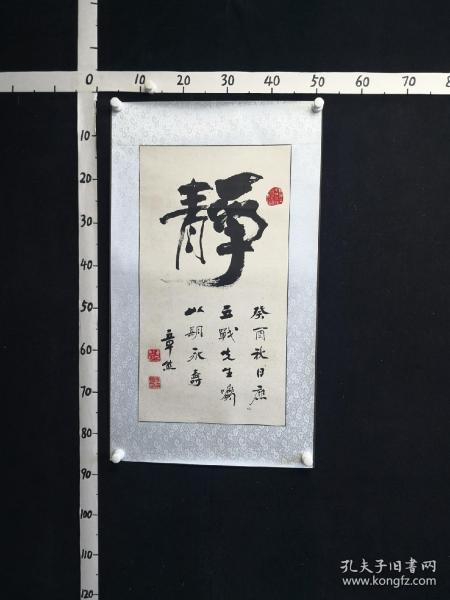 0 10 20 30 40 50 60 70 8
10
20
30
40
50
60
70
80
90
100
110
120
靜
癸酉秋日應
五戰先生囑
以期永壽
章
孔夫子旧书网
www.kongfz.com